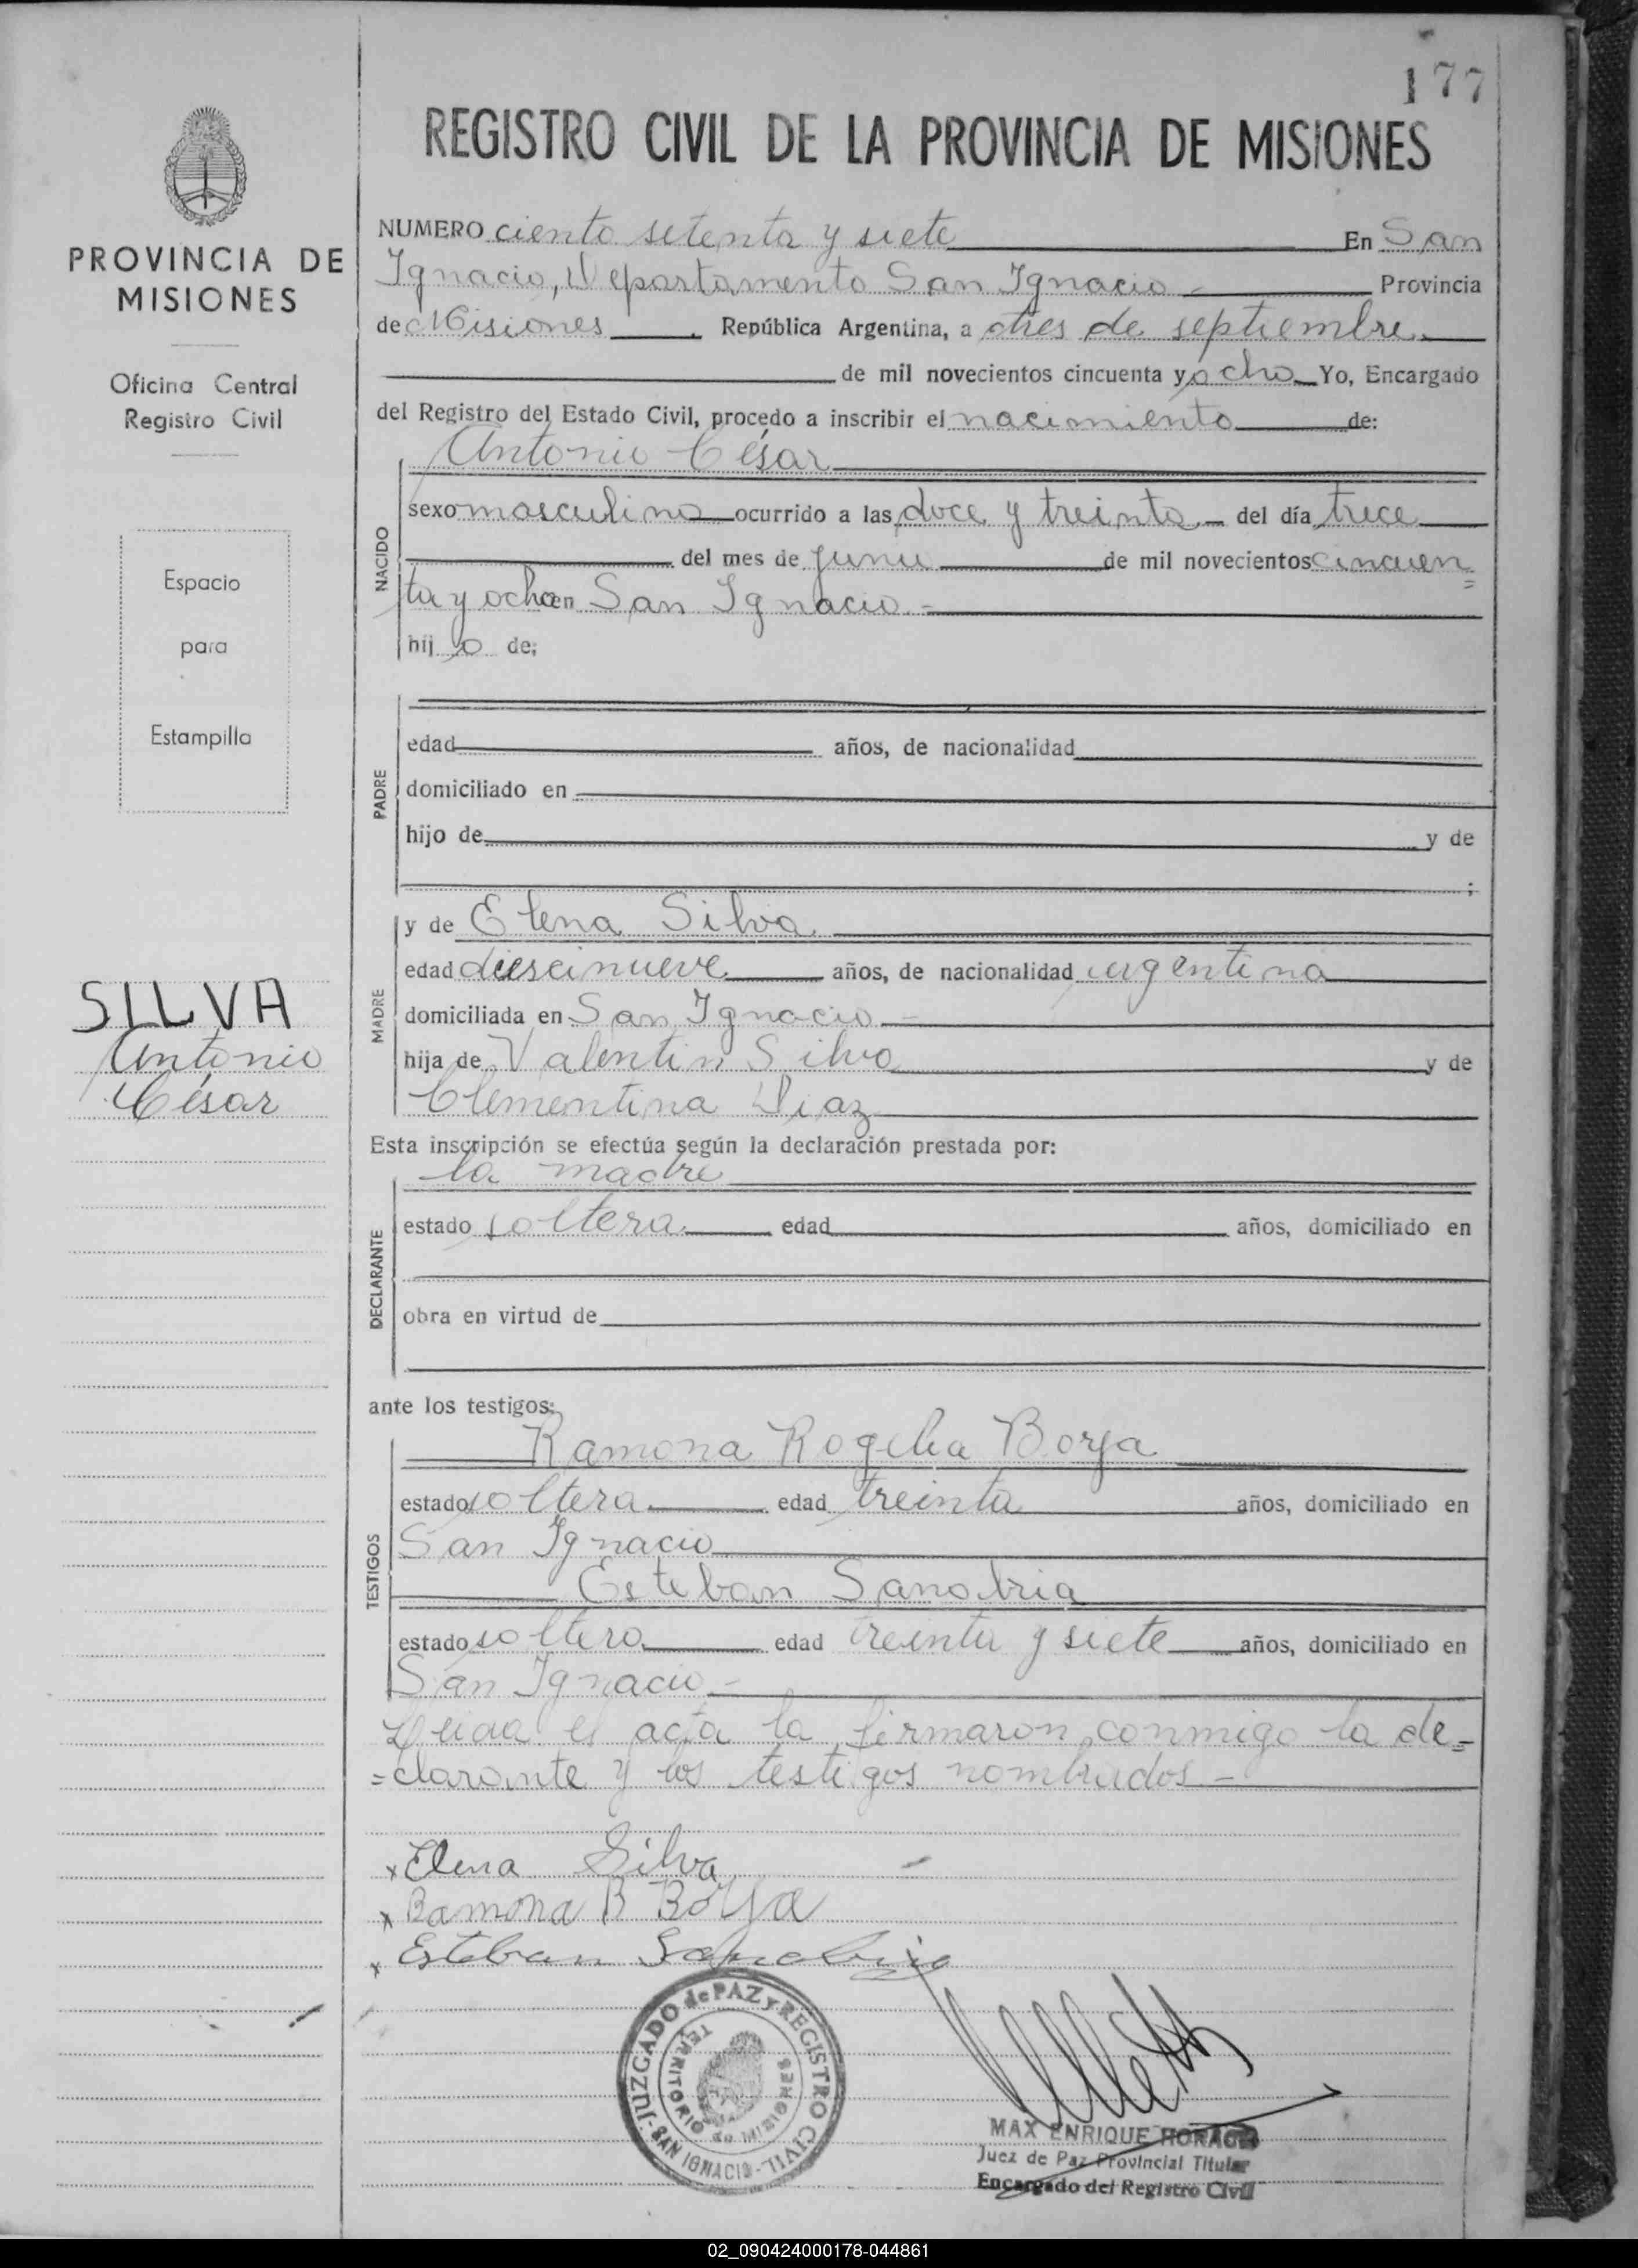 177
REGISTRO CIVIL DE LA PROVINCIA DE MISIONES
PROVINCIA DE
MISIONES
Oficina Central
Registro Civil
Espacio
para
Estampilla
SILVA
Antonio
César
NUMERO ciento setenta y siete En San
Ignacio, Departamento San Ignacio - Provincia
de Misiones República Argentina, a tres de septiembre
de mil novecientos cincuenta y ocho Yo, Encargado
del Registro del Estado Civil, procedo a inscribir el nacimiento de:
Antonio César
NACIDO
sexo masculino ocurrido a las doce y treinta del día trece
del mes de junio de mil novecientos cincuen=
ta y ocho en San Ignacio -
hijo de;
PADRE
edad años, de nacionalidad
domiciliado en
hijo de y de
;
MADRE
y de Elena Silva
edad diescinueve años, de nacionalidad argentina
domiciliada en San Ignacio -
hija de Valentin Silva y de
Clementina Diaz
Esta inscripción se efectúa según la declaración prestada por:
la madre
DECLARANTE
estado soltera edad años, domiciliado en
obra en virtud de
ante los testigos:
TESTIGOS
Ramona Rogelia Borja
estado soltera edad treinta años, domiciliado en
San Ignacio
Esteban Sanabria
estado soltero edad treinta y siete años, domiciliado en
San Ignacio -
Leida el acta la firmaron conmigo la de=
=clarante y los testigos nombrados -
x Elena Silva
x Ramona B Borja
x Esteban Sanabria
JUZGADO de PAZ y REGISTRO CIVIL - SAN IGNACIO -
TERRITORIO de MISIONES
MAX ENRIQUE
Juez de Paz Provincial Titular
Encargado del Registro Civil
02_090424000178-044861